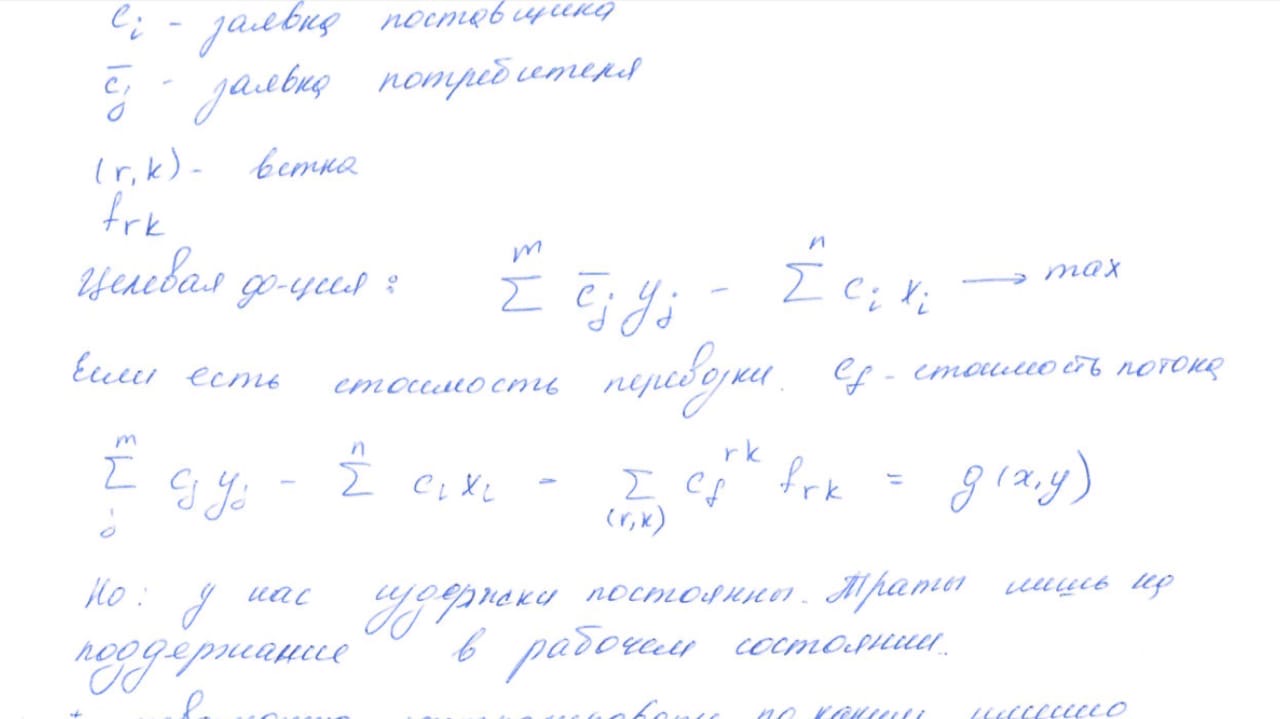 c_i - заявка поставщика
c̄_j - заявка потребителя
(r, k) - ветка
f_rk
Целевая ф-ция: ∑^m c̄_j y_j - ∑^n c_i x_i → max
Если есть стоимость перевозки. c_f - стоимость потока
∑_j^m c_j y_j - ∑^n c_i x_i - ∑_(r,k) c_f^rk f_rk = g(x,y)
Но: у нас издержки постоянны. Траты лишь на
поддержание в рабочем состоянии.